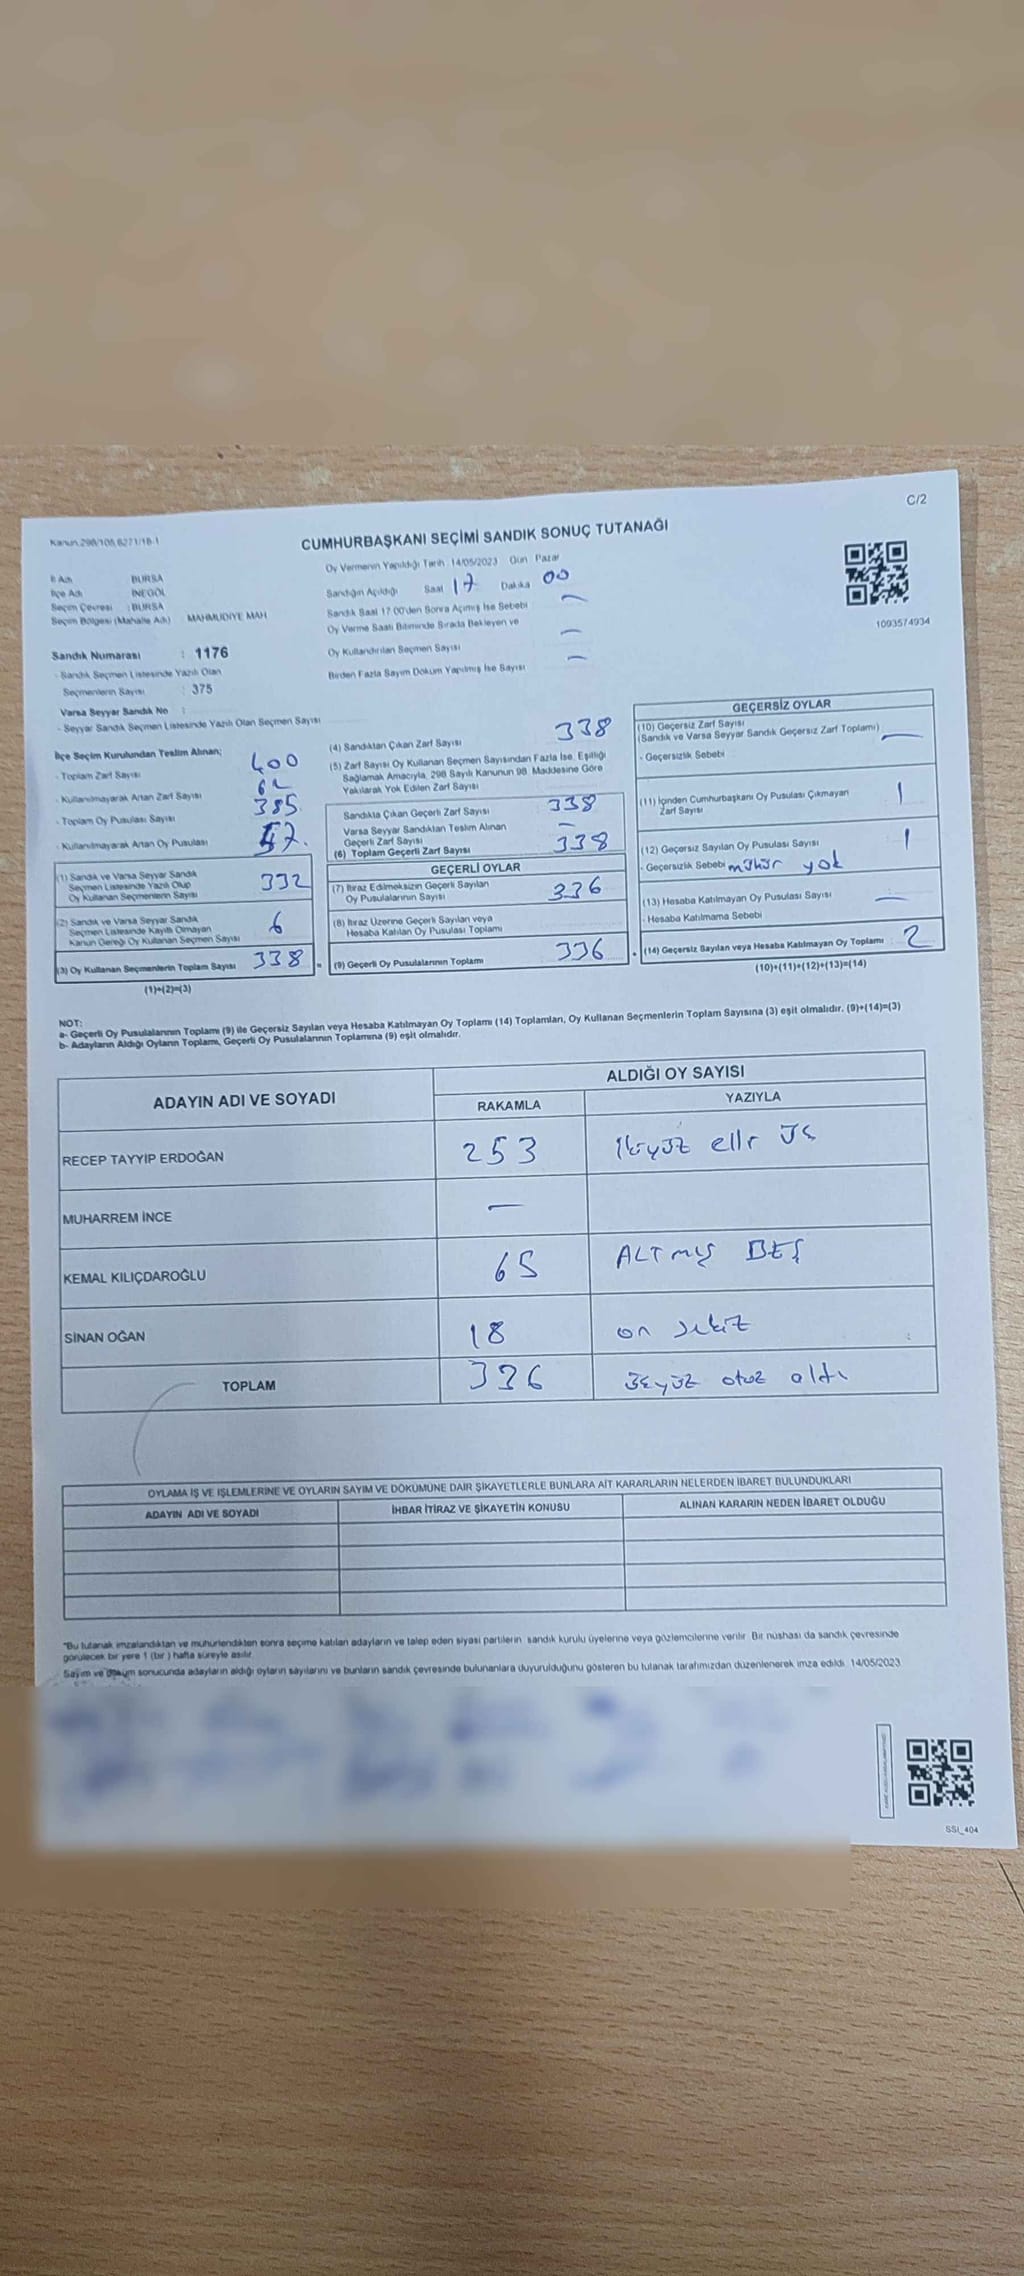 C/2
Kanun 298/105,6271/18-1
CUMHURBAŞKANI SEÇİMİ SANDIK SONUÇ TUTANAĞI
İl Adı : BURSA
İlçe Adı : İNEGÖL
Seçim Çevresi : BURSA
Seçim Bölgesi (Mahalle Adı) : MAHMUDİYE MAH
Sandık Numarası : 1176
- Sandık Seçmen Listesinde Yazılı Olan
Seçmenlerin Sayısı : 375
Varsa Seyyar Sandık No :
- Seyyar Sandık Seçmen Listesinde Yazılı Olan Seçmen Sayısı
Oy Vermenin Yapıldığı Tarih : 14/05/2023 Gün : Pazar
Sandığın Açıldığı Saat 17 Dakika 00
Sandık Saat 17:00'den Sonra Açımış İse Sebebi —
Oy Verme Saati Bitiminde Sırada Bekleyen ve
Oy Kullandırılan Seçmen Sayısı —
Birden Fazla Sayım Döküm Yapılmış İse Sayısı —
1093574934
İlçe Seçim Kurulundan Teslim Alınan;
- Toplam Zarf Sayısı 400
- Kullanılmayarak Artan Zarf Sayısı 62
- Toplam Oy Pusulası Sayısı 385
- Kullanılmayarak Artan Oy Pusulası 47.
(1) Sandık ve Varsa Seyyar Sandık
Seçmen Listesinde Yazılı Olup
Oy Kullanan Seçmenlerin Sayısı 332
(2) Sandık ve Varsa Seyyar Sandık
Seçmen Listesinde Kayıtlı Olmayan
Kanun Gereği Oy Kullanan Seçmen Sayısı 6
(3) Oy Kullanan Seçmenlerin Toplam Sayısı 338 =
(1)+(2)=(3)
(4) Sandıktan Çıkan Zarf Sayısı 338
(5) Zarf Sayısı Oy Kullanan Seçmen Sayısından Fazla İse, Eşitliği
Sağlamak Amacıyla, 298 Sayılı Kanunun 98. Maddesine Göre
Yakılarak Yok Edilen Zarf Sayısı
Sandıkta Çıkan Geçerli Zarf Sayısı 338
Varsa Seyyar Sandıktan Teslim Alınan
Geçerli Zarf Sayısı —
(6) Toplam Geçerli Zarf Sayısı 338
GEÇERLİ OYLAR
(7) İtiraz Edilmeksizin Geçerli Sayılan
Oy Pusulalarının Sayısı 336
(8) İtiraz Üzerine Geçerli Sayılan veya
Hesaba Katılan Oy Pusulası Toplamı
(9) Geçerli Oy Pusulalarının Toplamı 336 +
GEÇERSİZ OYLAR
(10) Geçersiz Zarf Sayısı
(Sandık ve Varsa Seyyar Sandık Geçersiz Zarf Toplamı) —
- Geçersizlik Sebebi
(11) İçinden Cumhurbaşkanı Oy Pusulası Çıkmayan
Zarf Sayısı 1
(12) Geçersiz Sayılan Oy Pusulası Sayısı 1
- Geçersizlik Sebebi mühür yok
(13) Hesaba Katılmayan Oy Pusulası Sayısı —
- Hesaba Katılmama Sebebi
(14) Geçersiz Sayılan veya Hesaba Katılmayan Oy Toplamı 2
(10)+(11)+(12)+(13)=(14)
NOT:
a- Geçerli Oy Pusulalarının Toplamı (9) ile Geçersiz Sayılan veya Hesaba Katılmayan Oy Toplamı (14) Toplamları, Oy Kullanan Seçmenlerin Toplam Sayısına (3) eşit olmalıdır. (9)+(14)=(3)
b- Adayların Aldığı Oyların Toplamı, Geçerli Oy Pusulalarının Toplamına (9) eşit olmalıdır.
ADAYIN ADI VE SOYADI
ALDIĞI OY SAYISI
RAKAMLA YAZIYLA
RECEP TAYYİP ERDOĞAN 253 İkiyüz elli üç
MUHARREM İNCE —
KEMAL KILIÇDAROĞLU 65 ALTMIŞ BEŞ
SİNAN OĞAN 18 on sekiz
TOPLAM 336 üçyüz otuz altı
OYLAMA İŞ VE İŞLEMLERİNE VE OYLARIN SAYIM VE DÖKÜMÜNE DAİR ŞİKAYETLERLE BUNLARA AİT KARARLARIN NELERDEN İBARET BULUNDUKLARI
ADAYIN ADI VE SOYADI İHBAR İTİRAZ VE ŞİKAYETİN KONUSU ALINAN KARARIN NEDEN İBARET OLDUĞU
"Bu tutanak imzalandıktan ve mühürlendikten sonra seçime katılan adayların ve talep eden siyasi partilerin sandık kurulu üyelerine veya gözlemcilerine verilir. Bir nüshası da sandık çevresinde
görülecek bir yere 1 (bir) hafta süreyle asılır.
Sayım ve döküm sonucunda adayların aldığı oyların sayılarını ve bunların sandık çevresinde bulunanlara duyurulduğunu gösteren bu tutanak tarafımızdan düzenlenerek imza edildi. 14/05/2023
SSİ_404